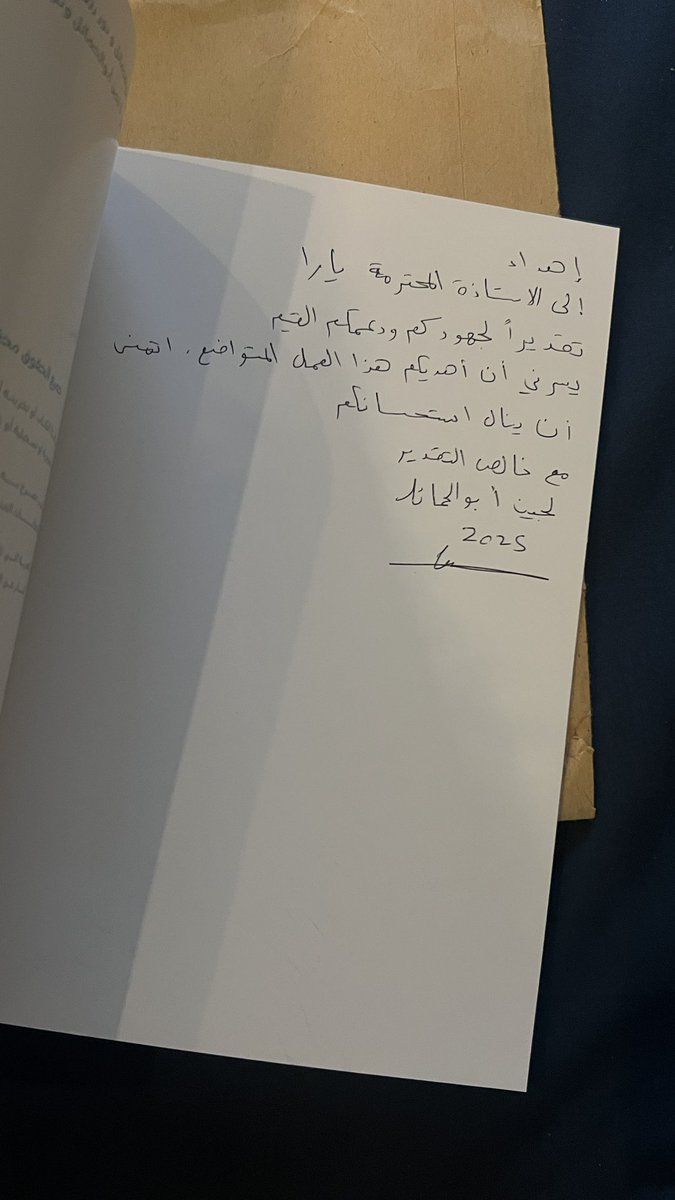 إهداء
إلى الاستاذة المحترمة يارا
تقديراً لجهودكم ودعمكم القيم
يسرني أن أهديكم هذا العمل المتواضع، اتمنى
أن ينال استحسانكم
مع خالص التقدير
لجين أبوالحمائل
2025